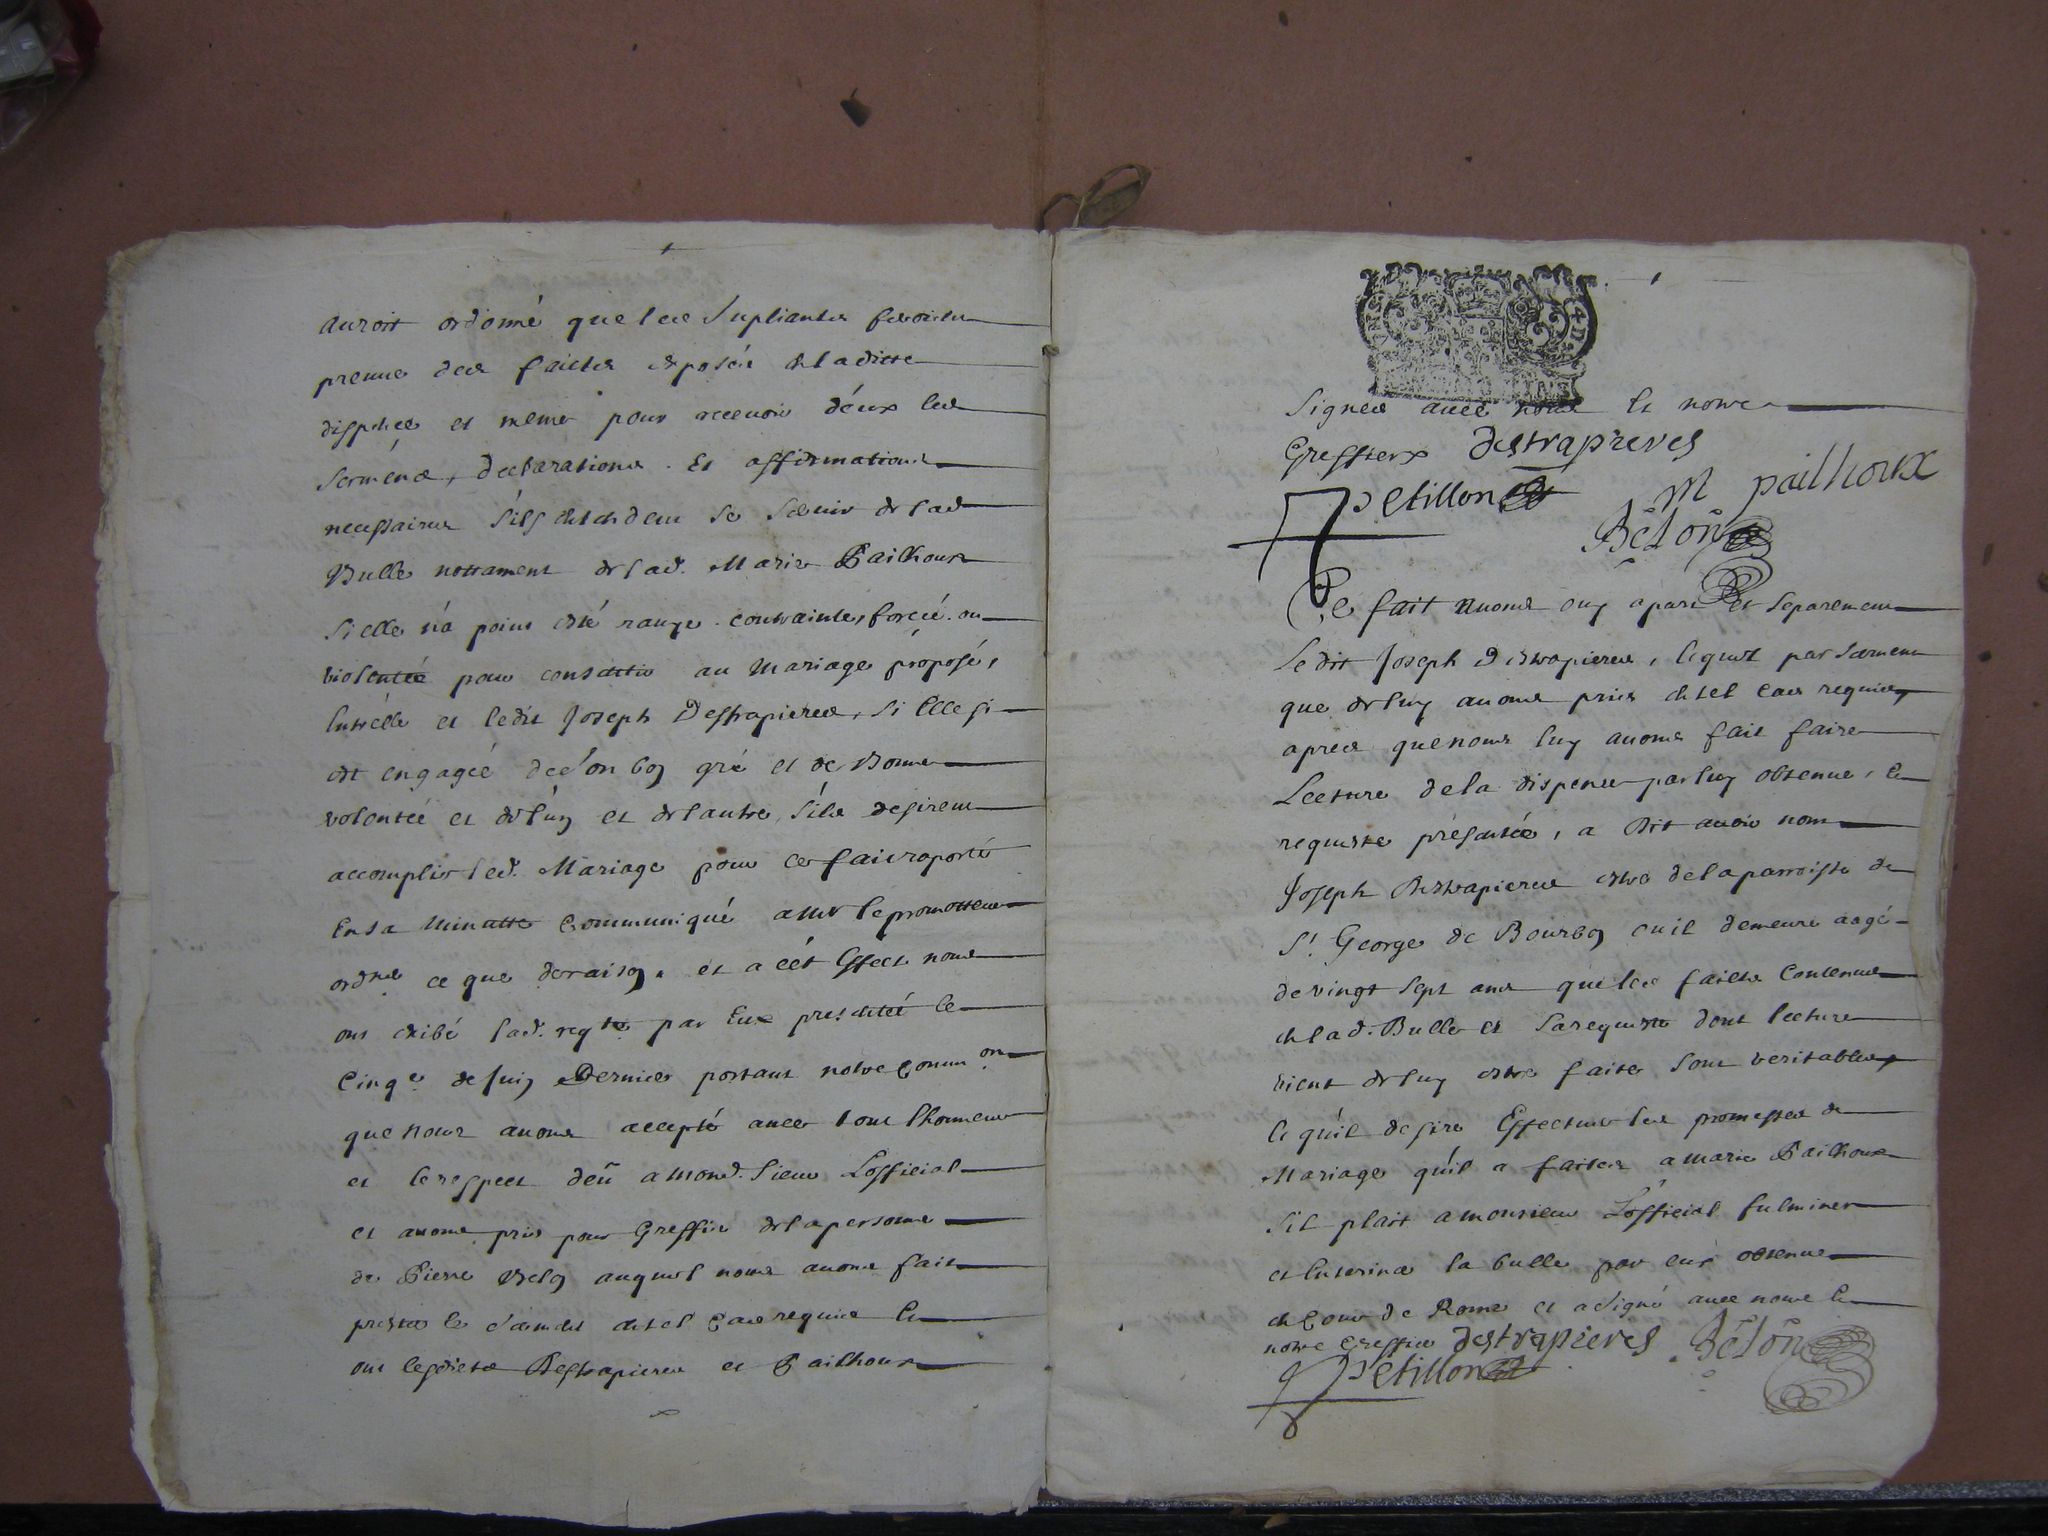 auroit ordonné que les Supliants feroient
preuve des faicts exposés en la ditte
dispence et meme pour recevoir d'eux les
serments, declarations. Et affirmations
necessaires s'ils entendent se servir de lad
Bulle nottament de lad. Marie Pailhoux
si elle n'a point esté contrainte, forcée. ou
violentée pour consentir au Mariage proposé,
Entr'elle et ledit Joseph Destrapieres, si Elle si
est engagée de son bon gré et de Bonne
volontée et de luy et de lautre, s'ils desirent
accomplir led. Mariage pour ce fait raporté
En sa Minutte Communiqué a Mr le promotteur
ordne ce que de raison. et a cét Effect nous
ont exibé lad. reqte par Eux presentéé le
Cinqe de Juin Dernier portant notre Common
que nous avons accepté avec tout lhonneur
et le respect deü a mond. sieur Lofficial
et avons pris pour Greffier de la personne
de Pierre Belon auquel nous avons fait
prester le serment en tel Cas requis Et
ont lesdicts Destrapieres et Pailhoux
Signés avec nous Et notre
Greffier destrapieres
Petillon M pailhoux
Belon
Ce fait Avons ouy apart et separement
Le dit Joseph Destrapieres, lequel par serment
que de luy avons pris en tel Cas requis,
apres que nous luy avons fait faire
Lecture de la dispence par luy obtenue, et
requeste présentée, a Dit avoir nom
Joseph Destrapieres estre de la parroisse de
St. George de Bourbon ou il demeure aagé
de vingt sept ans que les faicts Contenus
en lad. Bulle et sa requeste dont lecture
vient de luy estre faite sont veritables,
et qu'il desire Effectuer les promesses de
Mariage qu'il a faites a Marie Pailhoux
s'il plait a monsieur Lofficial fulminer
et Enteriner la bulle par eux obtenue
en Cour de Rome et a signé avec nous Et
notre Greffier destrapieres Belon
Petillon